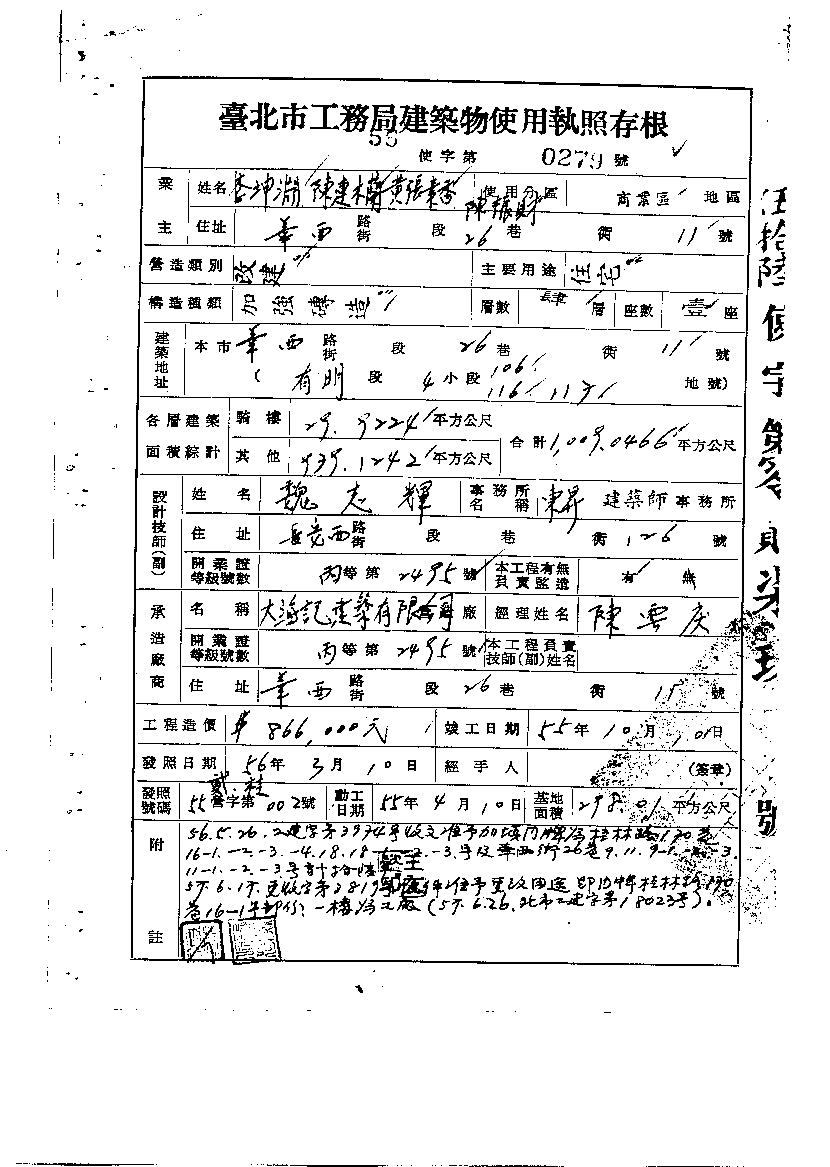 臺北市工務局建築物使用執照存根
55 使字第 0279 號
業主 姓名 陳建 黃張 陳振財 使用分區 商業區 地區
住址 華西 路街 段 26 巷 衖 11 號
營造類別 改建 主要用途 住宅
構造種類 加強磚造 層數 肆 層 座數 壹 座
建築地址 本市 華西 路街 段 26 巷 衖 11 號
( 有明 段 4 小段 106 116 117 地號)
各層建築面積綜計 騎樓 29.9224 平方公尺 合計 1,009.0466 平方公尺
其他 939.1242 平方公尺
設計技師(副) 姓名 魏志輝 事務所名稱 東昇 建築師事務所
住址 長安西 路街 段 巷 衖 126 號
開業證等級號數 丙等第 2495 號 本工程有無負責監造 有 無
承造廠商 名稱 大 記建築有限公司 廠 經理姓名 陳雲慶
開業證等級號數 丙等第 2495 號 本工程負責技師(副)姓名
住址 華西 路街 段 26 巷 衖 號
工程造價 866,000元 竣工日期 55年10月10日
發照日期 56年3月10日 經手人 (簽章)
發照號碼 55 營字第 002 號 動工日期 55年4月10日 基地面積 298.01 平方公尺
附註 56.5.26. 建字第3934號收文准予加填門牌為桂林路170巷
16-1.-2.-3.-4.18.18-1.-2.-3.號及華西街26巷9.11.9-1.-2.-3.
11-1.-2.-3.號
57.6.17. 收字第 准予更改用途即門牌桂林路170
巷16-1號部份一樓為工廠(57.6.26.北市工建字第18023號)。
伍拾陸使字第零貳柒玖號